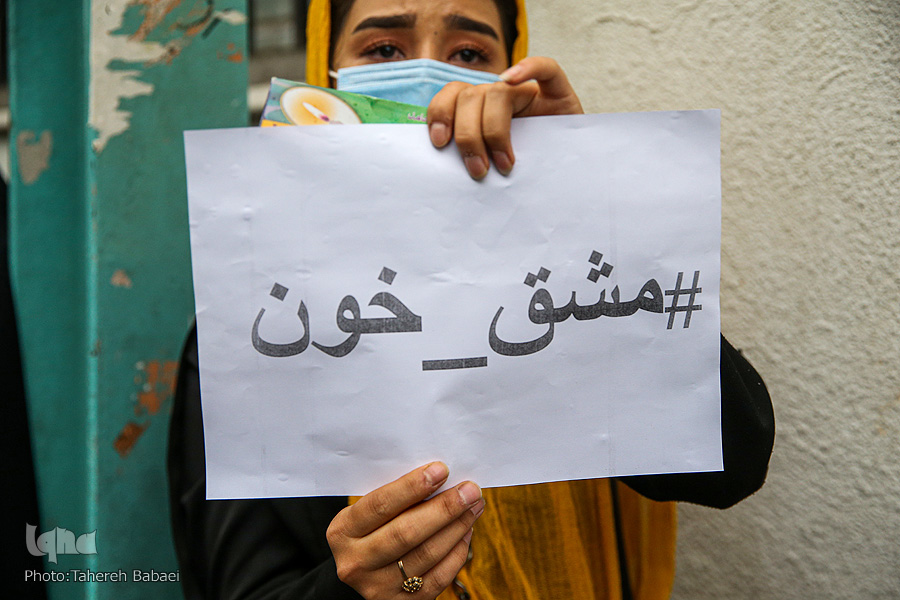 #مشق_خون
iqna
Photo:Tahereh Babaei